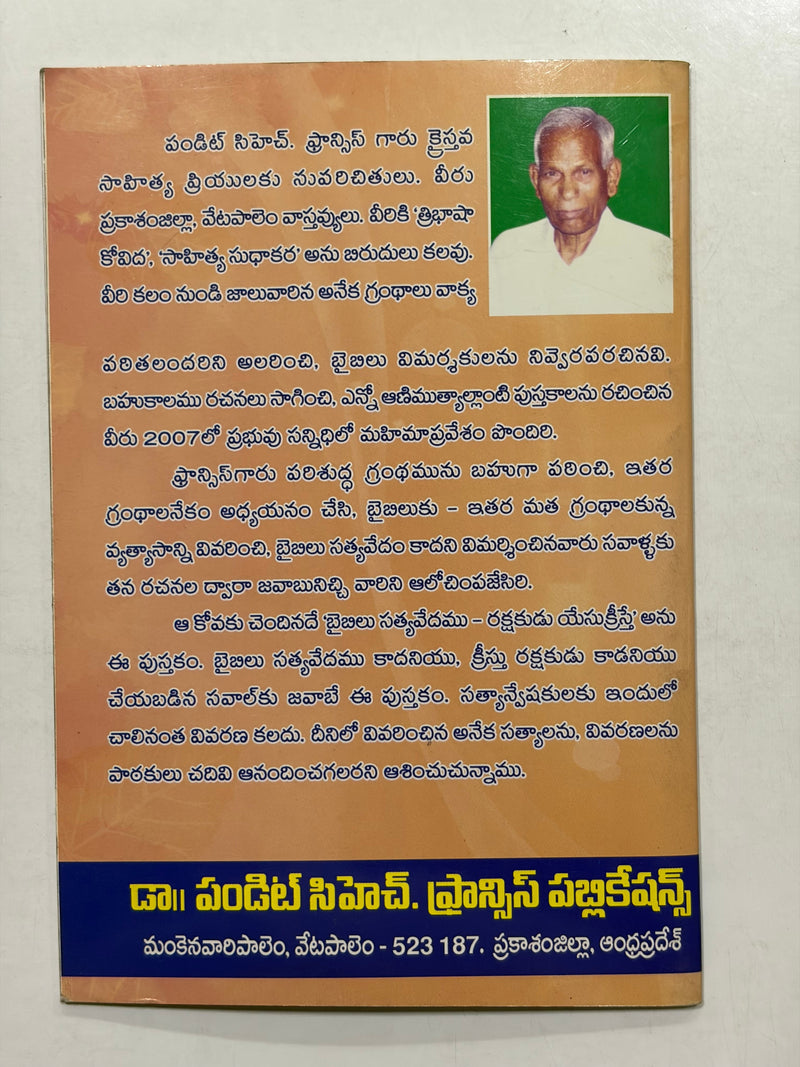 పండిట్ సిహెచ్. ఫ్రాన్సిస్ గారు క్రైస్తవ
సాహిత్య ప్రియులకు సువరిచితులు. వీరు
ప్రకాశంజిల్లా, వేటపాలెం వాస్తవ్యులు. వీరికి 'త్రిభాషా
కోవిద', 'సాహిత్య సుధాకర' అను బిరుదులు కలవు.
వీరి కలం నుండి జాలువారిన అనేక గ్రంథాలు వాక్య
పఠితలందరిని అలరించి, బైబిలు విమర్శకులను నివ్వెరపరచినవి.
బహుకాలము రచనలు సాగించి, ఎన్నో ఆణిముత్యాల్లాంటి పుస్తకాలను రచించిన
వీరు 2007లో ప్రభువు సన్నిధిలో మహిమాప్రవేశం పొందిరి.
ఫ్రాన్సిస్‌గారు పరిశుద్ధ గ్రంథమును బహుగా పఠించి, ఇతర
గ్రంథాలనేకం అధ్యయనం చేసి, బైబిలుకు – ఇతర మత గ్రంథాలకున్న
వ్యత్యాసాన్ని వివరించి, బైబిలు సత్యవేదం కాదని విమర్శించినవారు సవాళ్ళకు
తన రచనల ద్వారా జవాబునిచ్చి వారిని ఆలోచింపజేసిరి.
ఆ కోవకు చెందినదే 'బైబిలు సత్యవేదము – రక్షకుడు యేసుక్రీస్తే' అను
ఈ పుస్తకం. బైబిలు సత్యవేదము కాదనియు, క్రీస్తు రక్షకుడు కాడనియు
చేయబడిన సవాల్‌కు జవాబే ఈ పుస్తకం. సత్యాన్వేషకులకు ఇందులో
చాలినంత వివరణ కలదు. దీనిలో వివరించిన అనేక సత్యాలను, వివరణలను
పాఠకులు చదివి ఆనందించగలరని ఆశించుచున్నాము.
డా॥ పండిట్ సిహెచ్. ఫ్రాన్సిస్ పబ్లికేషన్స్
మంకెనవారిపాలెం, వేటపాలెం - 523 187. ప్రకాశంజిల్లా, ఆంధ్రప్రదేశ్